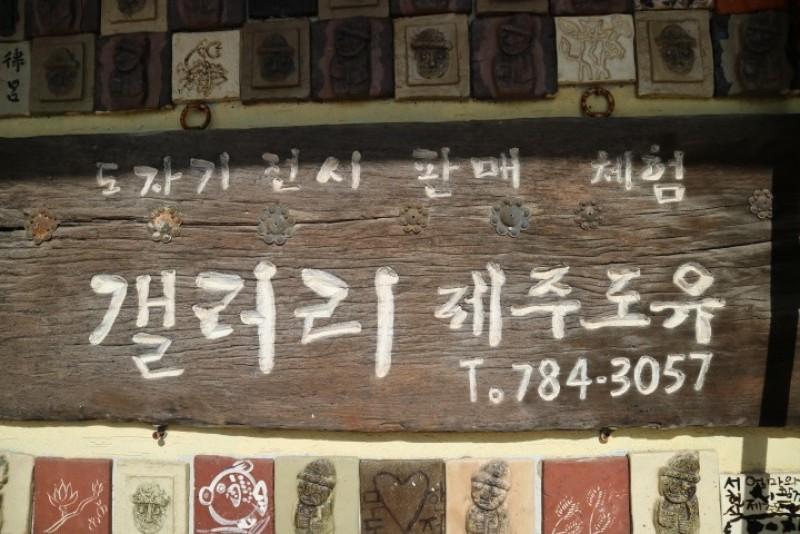 律
呂
도자기 전시 판매 체험
갤러리 제주도유
T. 784-3057